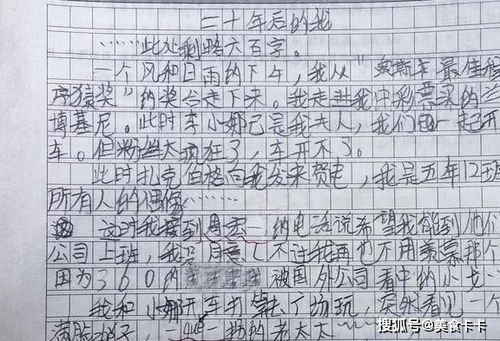 二十年后的我
……此处剩略六百字。
一个风和日雨的下午，我从“奥斯卡最佳程
序猿奖”的奖台走下来。我走进我中彩票买的兰
博基尼。此时李小娜已是我夫人，我们一起开
车。但粉丝太疯狂了，车开不了。
此时扎克伯格向我发来贺电，我是五年12班
所有人的偶像……
这时我接到周宏一的电话说希望我能到他们
公司上班，我
不过我再也不用羡慕那个
因为360的 被国外公司看中的小龙
我和小娜开车打算去广场玩，突然看见一个
满脸 的老太太
搜狐号@美食卡卡